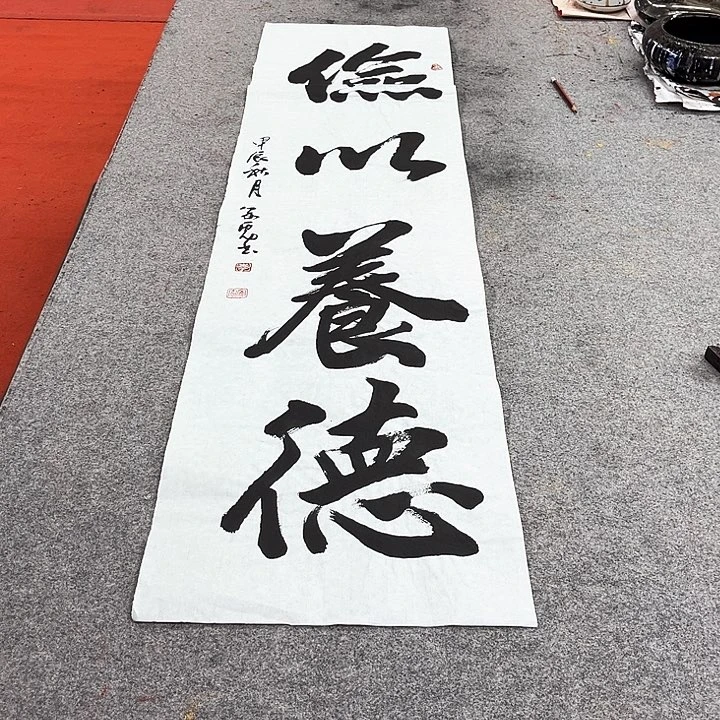 儉以養德
甲辰秋月